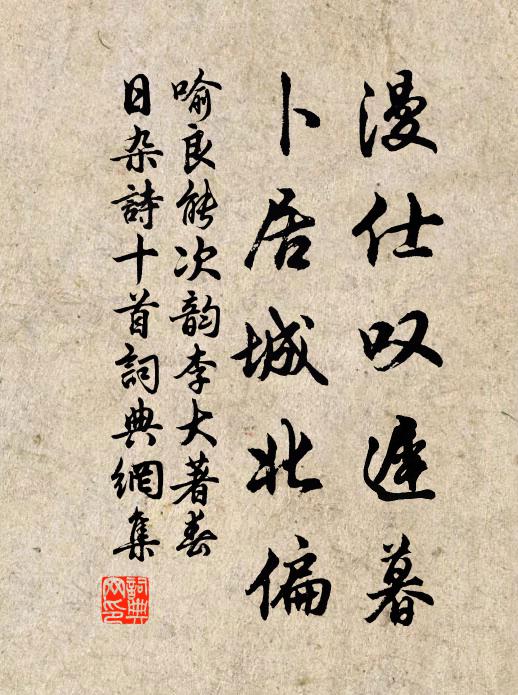 漫仕叹迟暮
卜居城北偏
喻良能次韵李大著春
日杂詩十首詞典網集
詞典
网印